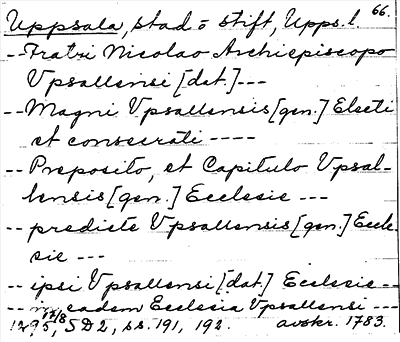 66.
Uppsala, stad o stift, Upps. l.
-- Fratri Nicolao Archiepiscopo
Vpsallensi [dat.] ---
-- Magni Vpsallensis [gen.] Electi
et consecrati ----
-- Preposito, et Capitulo Vpsal-
lensis [gen.] Ecclesie ---
-- predicte Vpsallensis [gen.] Eccle-
sie ---
-- ipsi Vpsallensi [dat.] Ecclesie --
-- eadem Ecclesia Vpsallensi ---
1295, 17/8 SD2, ss. 191, 192. avskr. 1783.